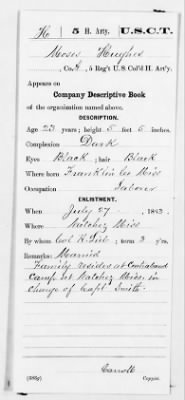 H | 5 H. Arty. | U.S.C.T.
Moses Hughes
, Co. A, 5 Reg't U.S. Col'd H. Art'y.
Appears on
Company Descriptive Book
of the organization named above.
DESCRIPTION.
Age 23 years; height 5 feet 6 inches.
Complexion Dark
Eyes Black; hair Black
Where born Franklin Co Miss
Occupation Laborer
ENLISTMENT.
When July 27, 1863.
Where Natchez Miss
By whom Col H. ; term 3 y'rs.
Remarks: Married
Family resides at Contraband
Camp at Natchez Miss, in
charge of Capt Smith.
Carroll
(383g) Copyist.